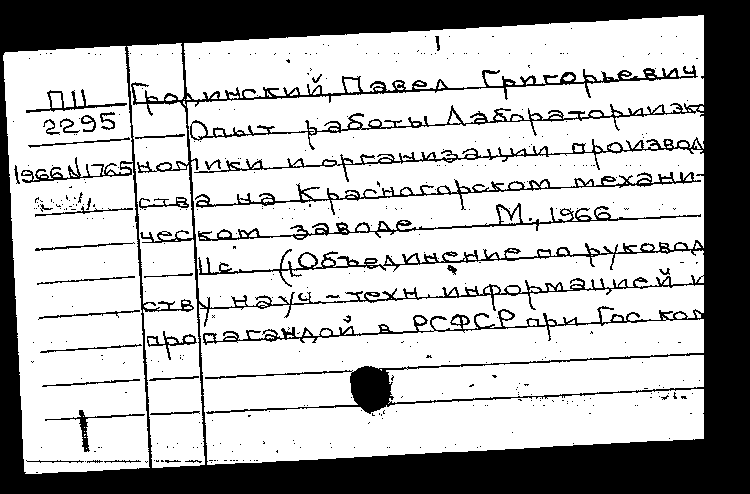 П11 Гродинский, Павел Григорьевич.
2295 Опыт работы Лаборатории эко
1966 N1765 номики и организации производ
ства на Красногорском механи-
ческом заводе. М., 1966.
11с. (Объединение по руковод
ству науч-техн. информацией и
пропагандой в РСФСР при Гос ком